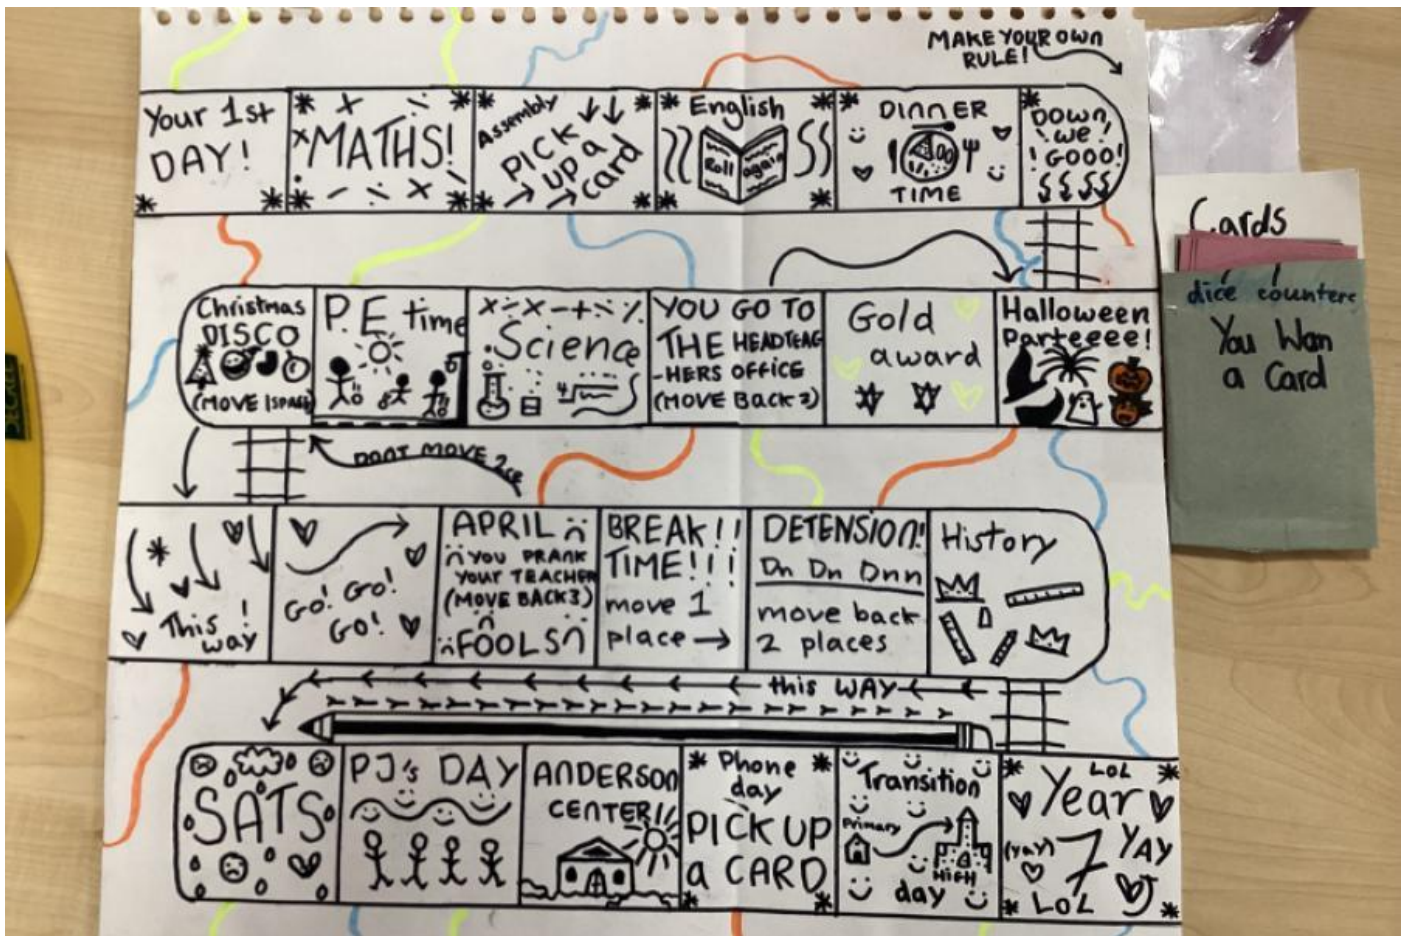 MAKE YOUR OWN
RULE!
Your 1st
DAY!
MATHS!
Assembly
PICK
UP a
card
English
Roll
again
DINNER
TIME
DOWN
we
GOOO!
Cards
dice counters
You Won
a Card
Christmas
DISCO
(MOVE 1 SPACE)
P.E time
Science
YOU GO TO
THE HEADTEAC
-HERS OFFICE
(MOVE BACK 2)
Gold
award
Halloween
Parteeee!
DONT MOVE
This!
way
Go! Go!
Go!
APRIL
YOU PRANK
YOUR TEACHER
(MOVE BACK 3)
FOOLS
BREAK!!
TIME!!!
move 1
place →
DETENSION!
Dn Dn Dnn
move back
2 places
History
this WAY
SATS
PJ's DAY
ANDERSON
CENTER!!
Phone
day
PICK UP
a CARD
Transition
Primary
HIGH
day
LOL
Year
7
(yay)
YAY
LOL